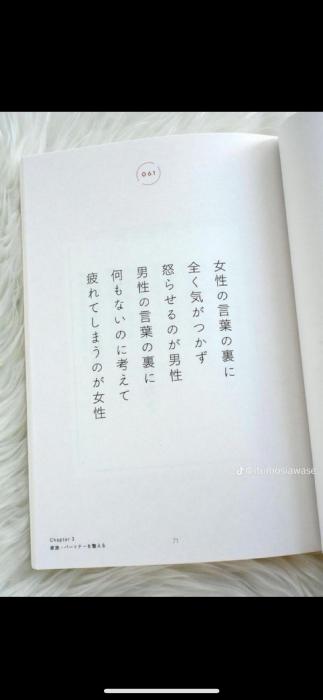 061
女性の言葉の裏に
全く気がつかず
怒らせるのが男性
男性の言葉の裏に
何もないのに考えて
疲れてしまうのが女性
@itumosiawase
Chapter 3
家族・パートナーを整える
71